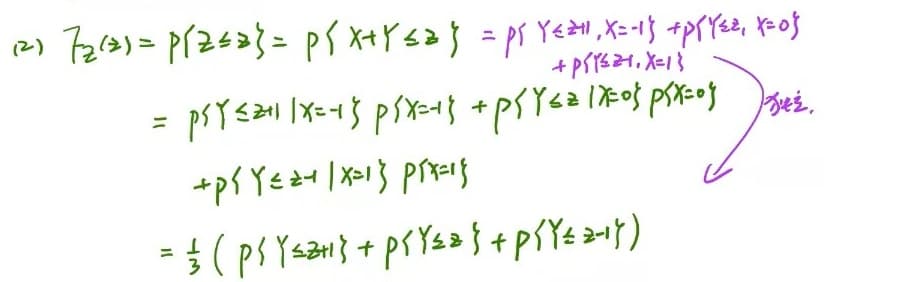 (2) F_Z(z) = P{Z≤z} = P{X+Y≤z} = P{Y≤z+1, X=-1} + P{Y≤z, X=0}
+ P{Y≤z-1, X=1}
= P{Y≤z+1 | X=-1} P{X=-1} + P{Y≤z | X=0} P{X=0}
+ P{Y≤z-1 | X=1} P{X=1}
= 1/3 ( P{Y≤z+1} + P{Y≤z} + P{Y≤z-1} )